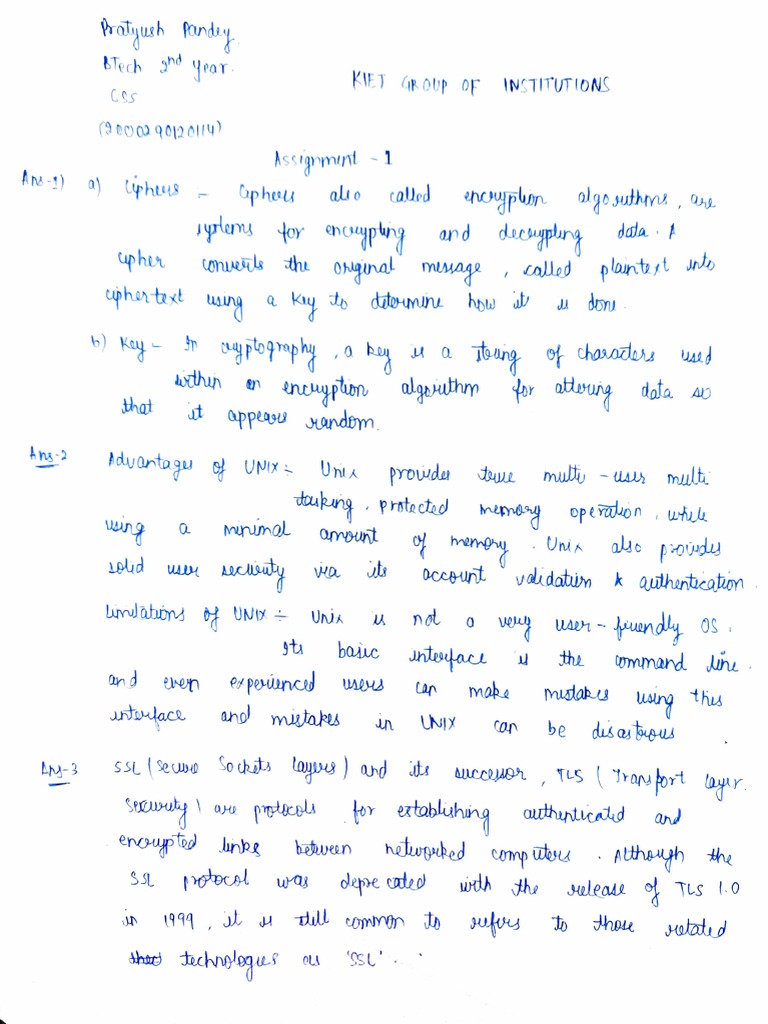 Pratyush Pandey
BTech 2nd Year.
KIET GROUP OF INSTITUTIONS
CSS
(2000290120114)
Assignment - 1
Ans-1) a) Ciphers - Ciphers also called encryption algorithms, are
systems for encrypting and decrypting data. A
cipher converts the original message, called plaintext into
ciphertext using a key to determine how it is done.
b) Key - In cryptography, a key is a string of characters used
within an encryption algorithm for altering data so
that it appears random.
Ans-2 Advantages of UNIX :- Unix provides true multi-user multi
tasking, protected memory operation, while
using a minimal amount of memory. Unix also provides
solid user security via its account validation & authentication.
Limitations of UNIX :- Unix is not a very user-friendly OS.
Its basic interface is the command line.
and even experienced users can make mistakes using this
interface and mistakes in UNIX can be disastrous.
Ans-3 SSL (Secure Sockets Layers) and its successor, TLS (Transport Layer
Security) are protocols for establishing authenticated and
encrypted links between networked computers. Although the
SSL protocol was deprecated with the release of TLS 1.0
in 1999, it is still common to refers to those related
technologies as 'SSL'.